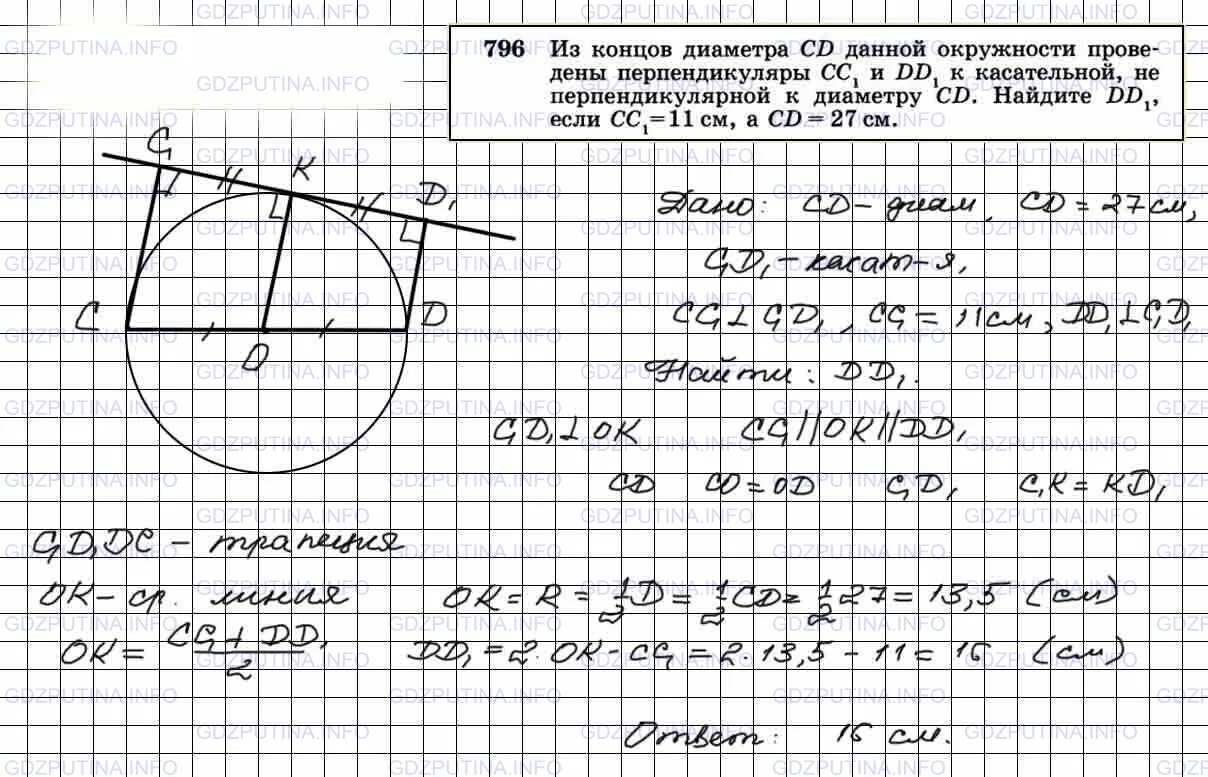 796 Из концов диаметра CD данной окружности прове-
дены перпендикуляры CC₁ и DD₁ к касательной, не
перпендикулярной к диаметру CD. Найдите DD₁,
если CC₁ = 11 см, а CD = 27 см.
C₁ K D₁
C D
O
Дано: CD – диам, CD = 27 см,
C₁D₁ – касат-я,
CC₁ ⊥ C₁D₁, CC₁ = 11 см, DD₁ ⊥ C₁D₁
Найти: DD₁.
C₁D₁ ⊥ OK CC₁ || OK || DD₁
CD CO = OD C₁D₁ C₁K = KD₁
C₁D₁DC – трапеция
OK – ср. линия OK = R = 1/2 D = 1/2 CD = 1/2 27 = 13,5 (см)
OK = (CC₁ + DD₁)/2 DD₁ = 2 · OK - CC₁ = 2 · 13,5 - 11 = 16 (см)
Ответ: 16 см.
GDZPUTINA.INFO